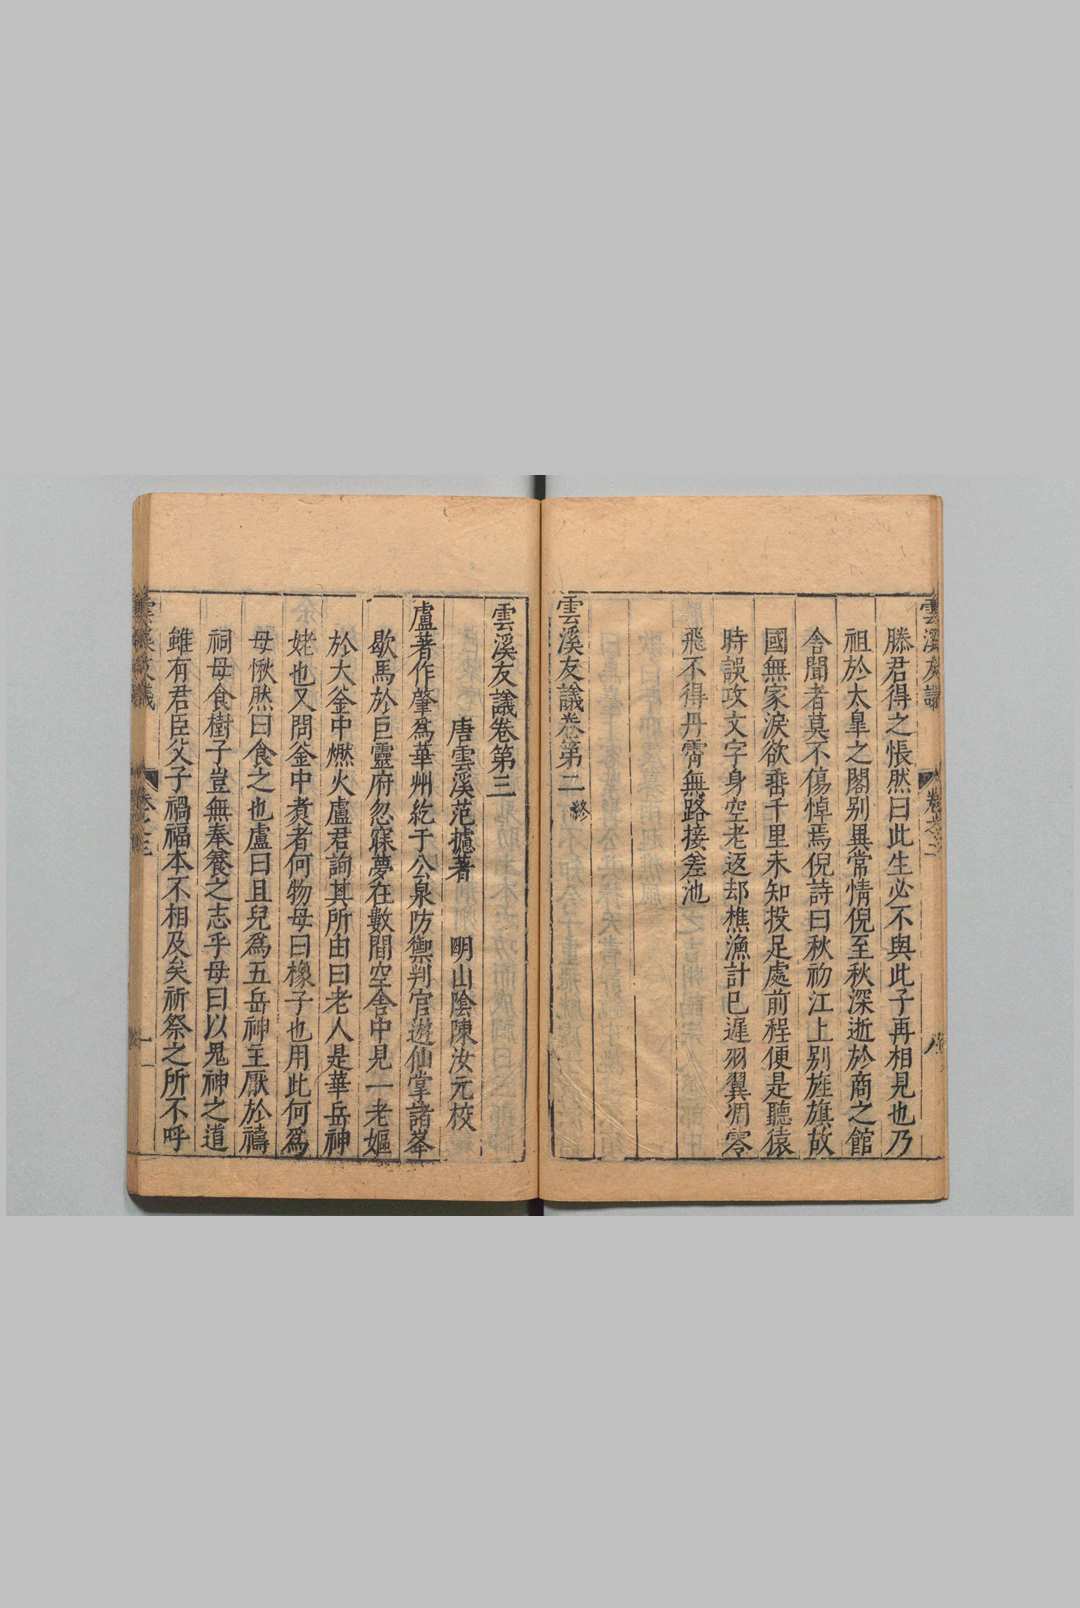 雲溪友議
卷之二
八
滕君得之悵然曰此生必不與此子再相見也乃
祖於太皐之閣别異常情倪至秋深逝於商之館
舍聞者莫不傷悼焉倪詩曰秋初江上别旌旗故
國無家淚欲垂千里未知投足處前程便是聽猿
時誤攻文字身空老返却樵漁計已遲羽翼凋零
飛不得丹霄無路接差池
雲溪友議卷第二 終
雲溪友議卷第三
唐雲溪范攄著 明山陰陳汝元校
盧著作肇爲華州紇干公泉防禦判官遊仙掌諸峯
歇馬於巨靈府忽寐夢在數間空舍中見一老嫗
於大釜中燃火盧君詢其所由曰老人是華岳神
姥也又問釜中煑者何物母曰橡子也用此何爲
母愀然曰食之也盧曰且兒爲五岳神主厭於禱
祠母食樹子豈無奉養之志乎母曰以鬼神之道
雖有君臣父子禍福本不相及矣祈祭之所不呼
雲溪友議
卷之三
一